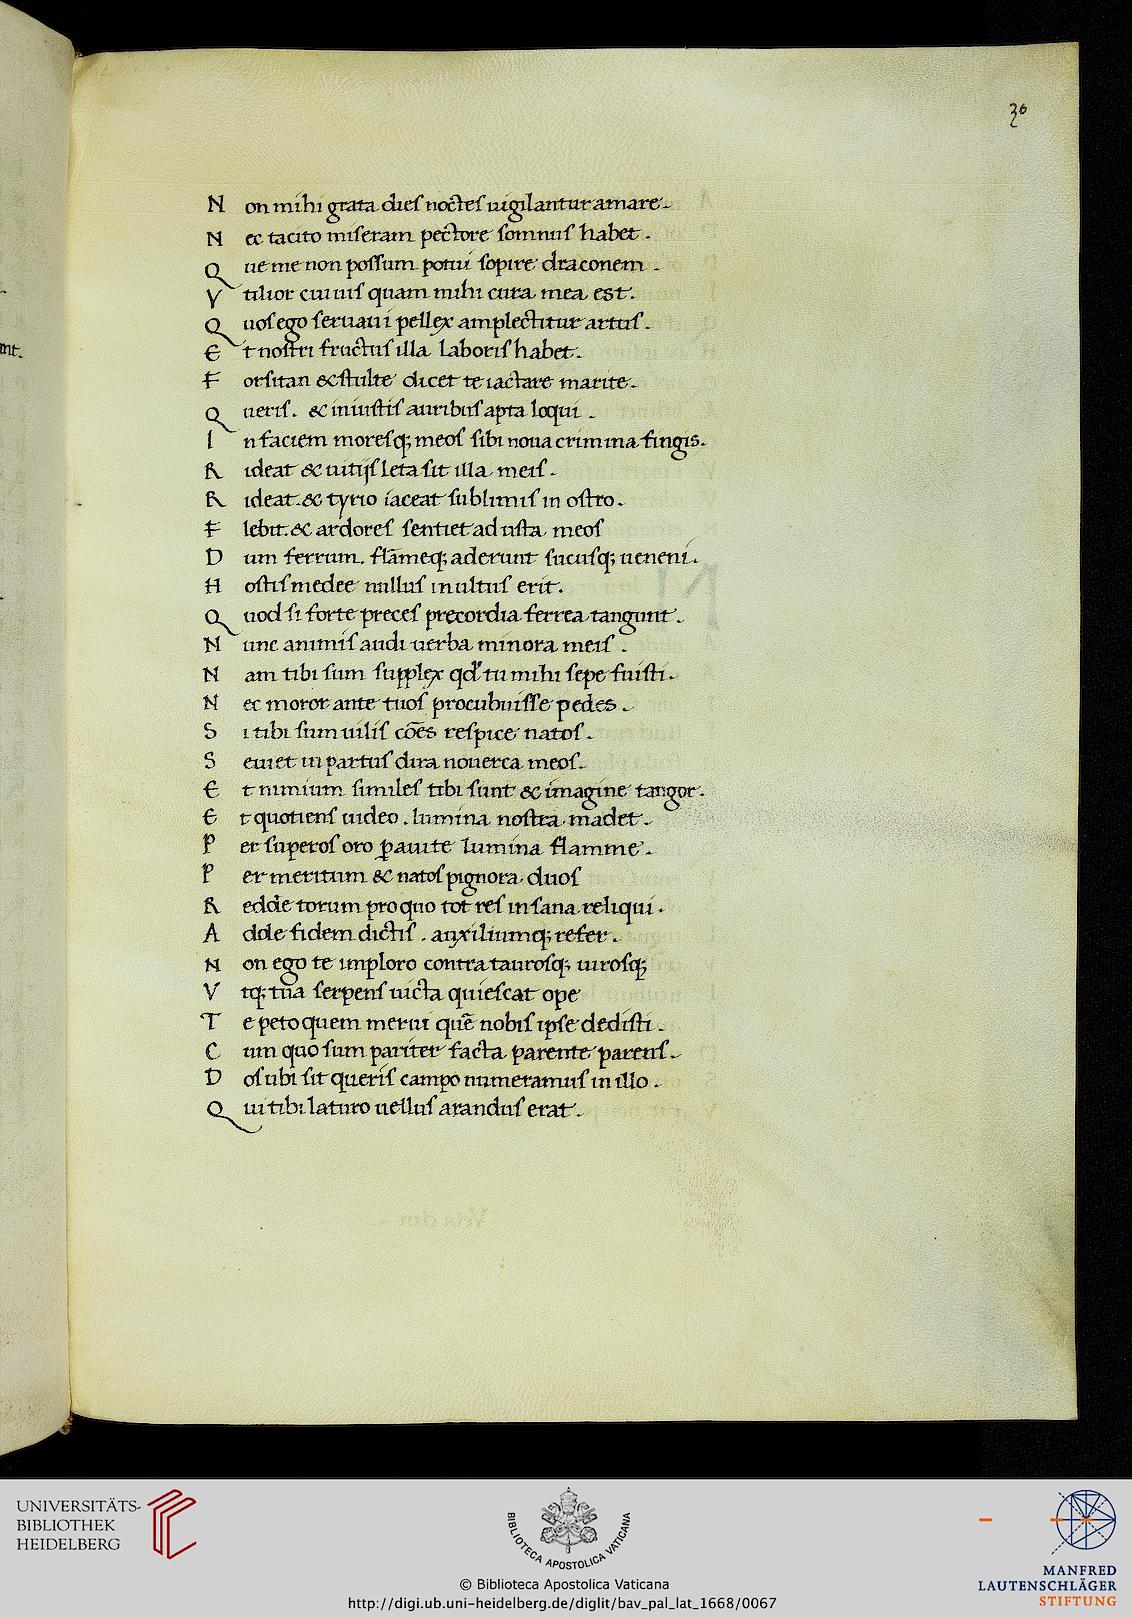 30
nt.
Non mihi grata dies noctes uigilantur amare.
Nec tacito miseram pectore somnus habet.
Que me non possum potui sopire draconem.
Vtilior cuiuis quam mihi cura mea est.
Quos ego seruaui pellex amplectitur artus.
Et nostri fructus illa laboris habet.
Forsitan & stulte dicet te iactare marite.
Queris. & iniustis auribus apta loqui.
In faciem moresq; meos sibi noua crimina fingis.
Rideat & uitijs leta sit illa meis.
Rideat. & tyrio iaceat sublimis in ostro.
Flebit. & ardores sentiet adusta meos
Dum ferrum. flāmeq; aderunt sucusq; ueneni.
Hostis medee nullus inultus erit.
Quod si forte preces precordia ferrea tangunt.
Nunc animis audi uerba minora meis.
Nam tibi sum supplex qđ tu mihi sepe fuisti.
Nec moror ante tuos procubuisse pedes.
Si tibi sum uilis cōēs respice natos.
Seuiet in partus dira nouerca meos.
Et nimium similes tibi sunt & imagine tangor.
Et quotiens uideo. lumina nostra madet.
Per superos oro p̱ auite lumina flamme.
Per meritum & natos pignora duos
Redde torum pro quo tot res insana reliqui.
Adde fidem dictis. auxiliumq; refer.
Non ego te imploro contra taurosq; uirosq;
Vtq; tua serpens uicta quiescat ope
Te peto quem merui quē nobis ipse dedisti.
Cum quo sum pariter facta parente parens.
Dos ubi sit queris campo numeramus in illo.
Qui tibi laturo uellus arandus erat.
UNIVERSITÄTS-
BIBLIOTHEK
HEIDELBERG
BIBLIOTECA APOSTOLICA VATICANA
MANFRED
LAUTENSCHLÄGER
STIFTUNG
© Biblioteca Apostolica Vaticana
http://digi.ub.uni-heidelberg.de/diglit/bav_pal_lat_1668/0067